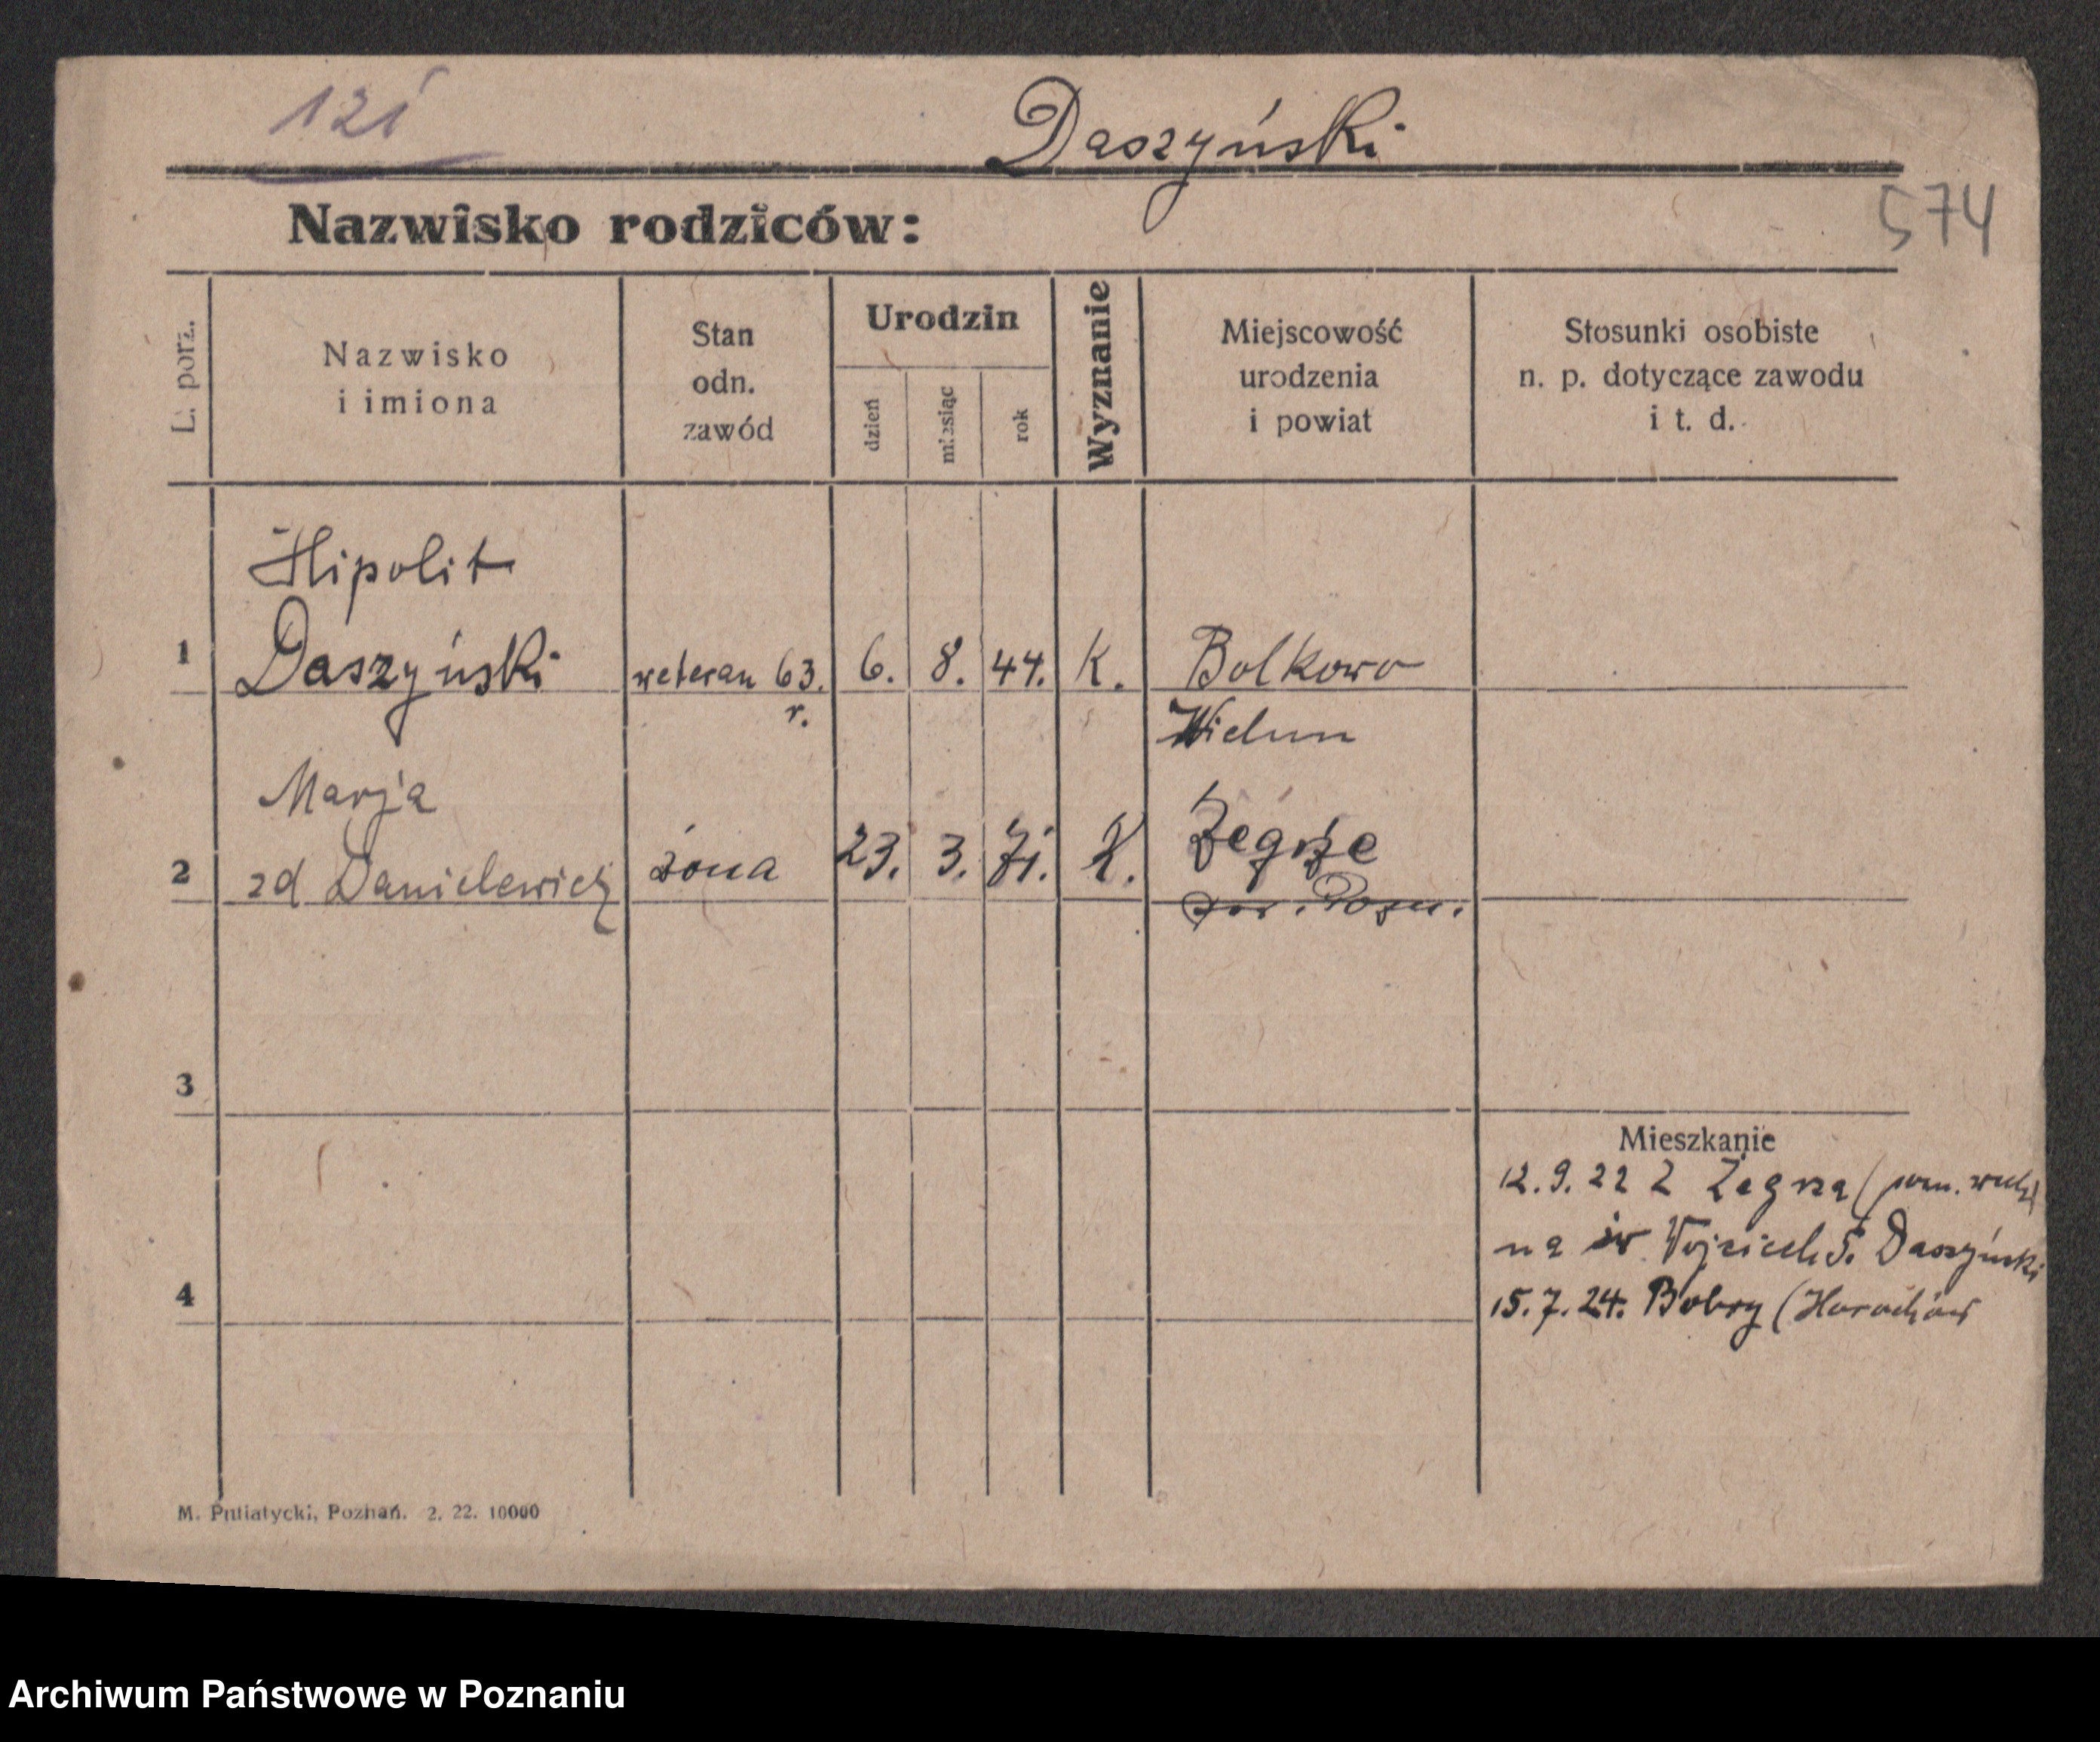 121
Daszyński
574
Nazwisko rodziców:
L. porz.
Nazwisko
i imiona
Stan
odn.
zawód
Urodzin
dzień
miesiąc
rok
Wyznanie
Miejscowość
urodzenia
i powiat
Stosunki osobiste
n. p. dotyczące zawodu
i t. d.
Hipolit
1 Daszyński weteran 63. 6. 8. 44. K. Bolkowo
r. Wielun
Marja Zegrze
2 zd Danielewicz żona 23. 3. 71. K.
pow. Pozn.
3
Mieszkanie
12.9.22 Z Zegrza (pow.
na św Wojciech 5. Daszyński
15.7.24. Bobry (Horochów
4
M. Putiatycki, Poznań. 2. 22. 10000
Archiwum Państwowe w Poznaniu